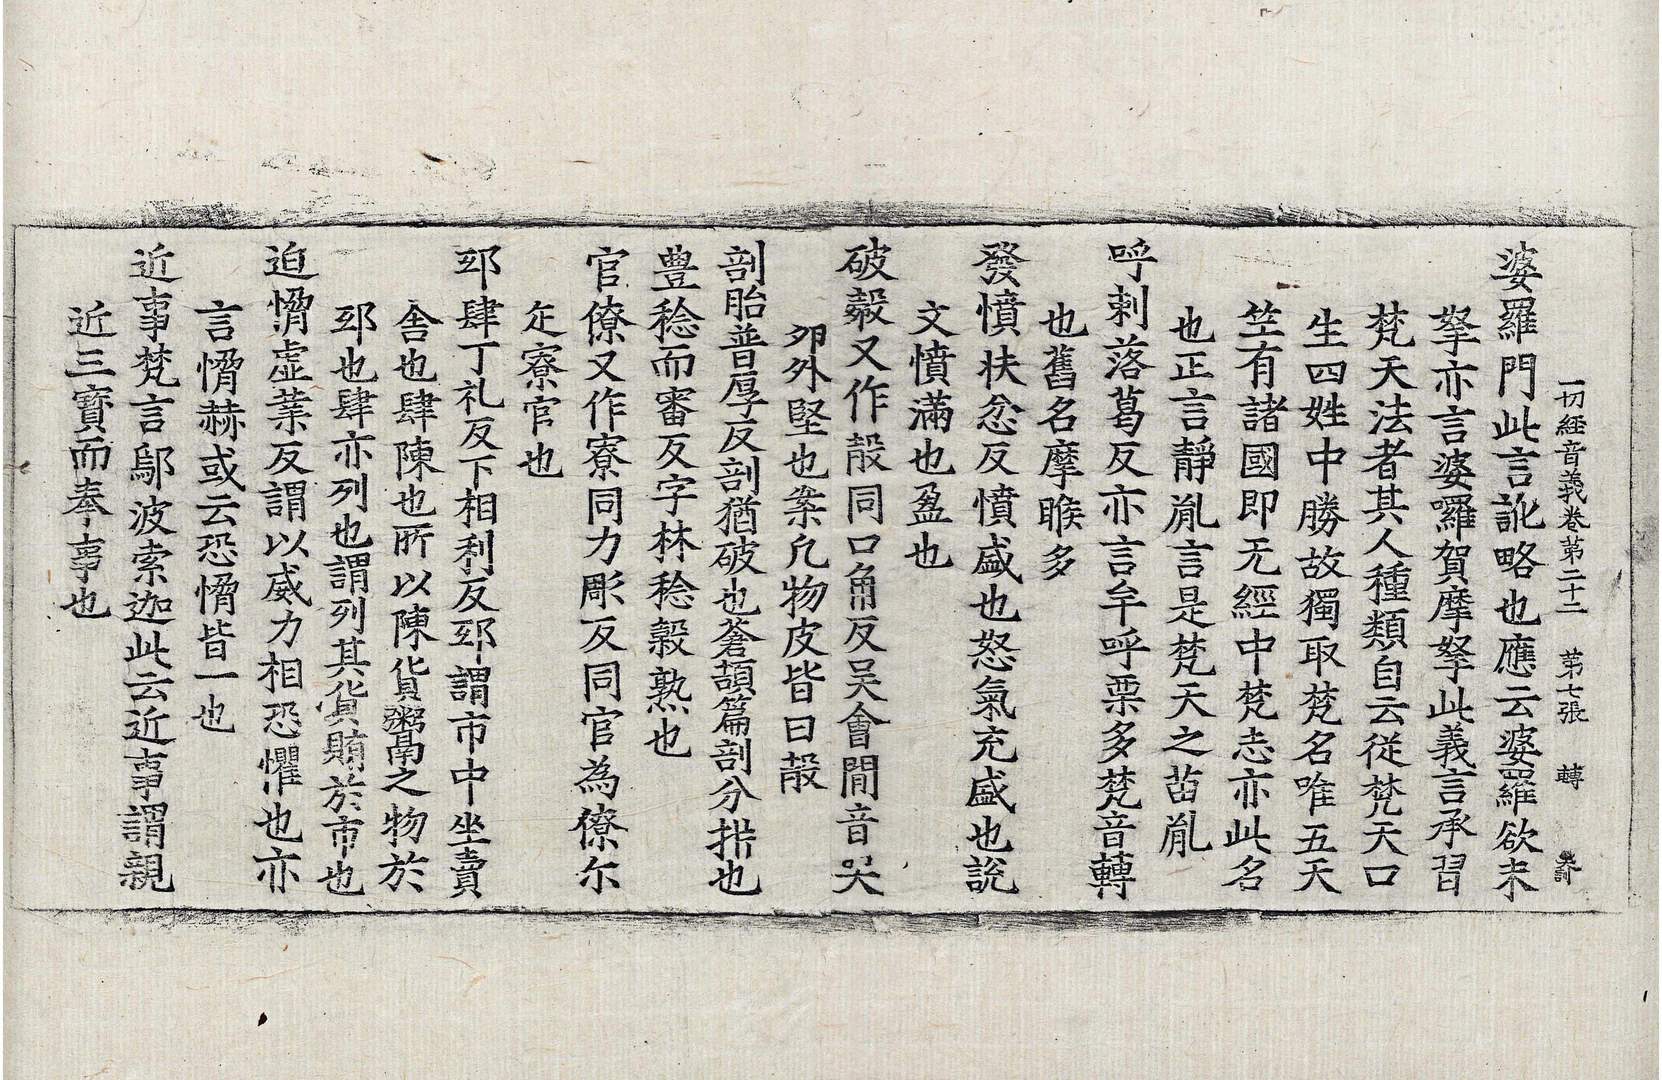 一切經音義卷第二十二 第七張 轉
婆羅門此言訛略也應云婆羅欲末
拏亦言婆囉賀摩拏此義言承習
梵天法者其人種類自云從梵天口
生四姓中勝故獨取梵名唯五天
竺有諸國即无經中梵志亦此名
也正言靜胤言是梵天之苗胤
呼剌落葛反亦言牟呼栗多梵音轉
也舊名摩睺多
發憤扶忿反憤盛也怒氣充盛也說
文憤滿也盈也
破㲉又作㱿同口角反吳會間音哭
卵外堅也案凡物皮皆曰㱿
剖胎普厚反剖猶破也蒼頡篇剖分㭊也
豊稔而審反字林稔穀熟也
官僚又作寮同力彫反同官為僚尒
疋寮官也
邸肆丁礼反下相利反邸謂市中坐賣
舍也肆陳也所以陳貨鬻之物於
邸也肆亦列也謂列其貨賄於市也
迫愶虛業反謂以威力相恐懼也亦
言愶赫或云恐愶皆一也
近事梵言鄔波索迦此云近事謂親
近三寶而奉事也